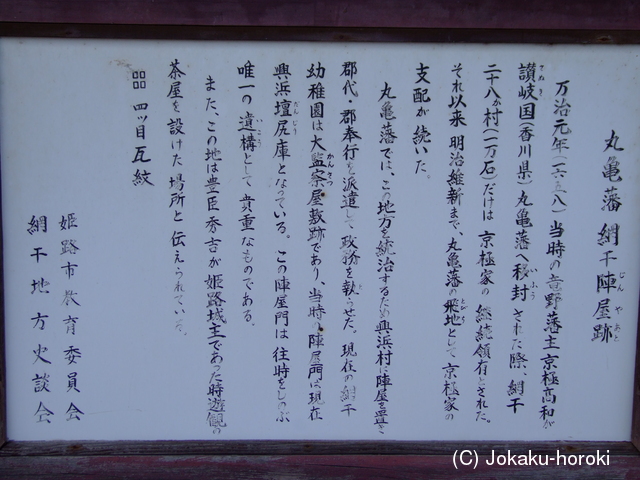 丸亀藩 網干陣屋跡
じんやあと
万治元年(一六五八)当時の竜野藩主京極高和が
讃岐国(香川県)丸亀藩へ移封された際、網干
さぬき
いふう
二十八か村(一万石)だけは京極家の継続領有とされた。
それ以来明治維新まで、丸亀藩の飛地として京極家の
とびち
支配が続いた。
丸亀藩では、この地方を統治するため興浜村に陣屋を置き
郡代・郡奉行を派遣して政務を執らせた。現在の網干
幼稚園は大監察屋敷跡であり、当時の陣屋門は現在
かんさつ
興浜壇尻庫となっている。この陣屋門は往時をしのぶ
だんじり
唯一の遺構として貴重なものである。
いこう
また、この地は豊臣秀吉が姫路城主であった時遊観の
茶屋を設けた場所と伝えられている。
四ッ目瓦紋
姫路市教育委員会
網干地方史談会
(C) Jokaku-horoki